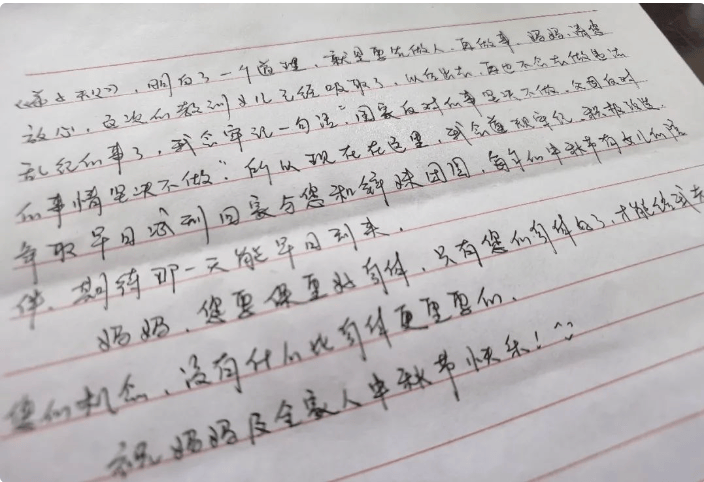 《弟子规》，明白了一个道理，就是要先做人，再做事，妈妈，请您
放心，这次的教训女儿已经吸取了，以后出去，再也不会去做违法
乱纪的事了，我会牢记一句话："国家反对的事坚决不做，父母反对
的事情坚决不做"。所以现在在这里，我会遵规守纪，积极改造
争取早日回到回家与您和 妹团圆，每年的中秋节有女儿的陪
伴，期待那一天能早日到来。
妈妈，您要保重好身体，只有您的身体好了，才能给我
您的 ，没有什么比身体更重要的。
祝妈妈及全家人中秋节快乐！^^